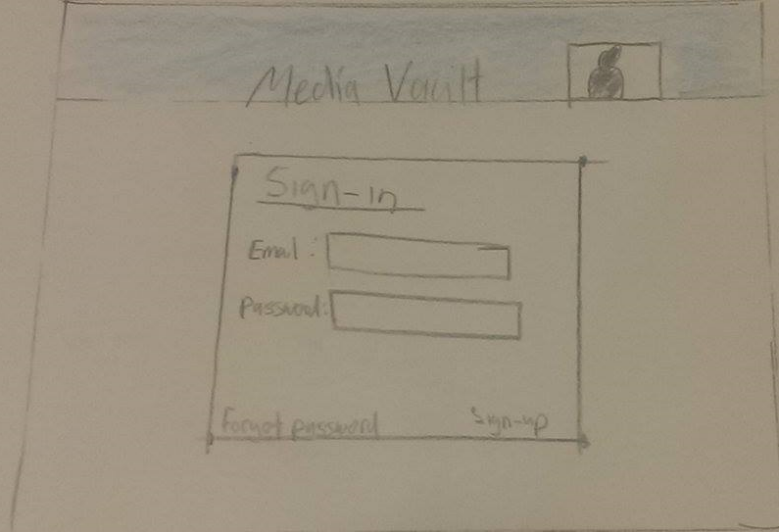 Media Vault
Sign-in
Email:
Password:
Forgot password Sign-up